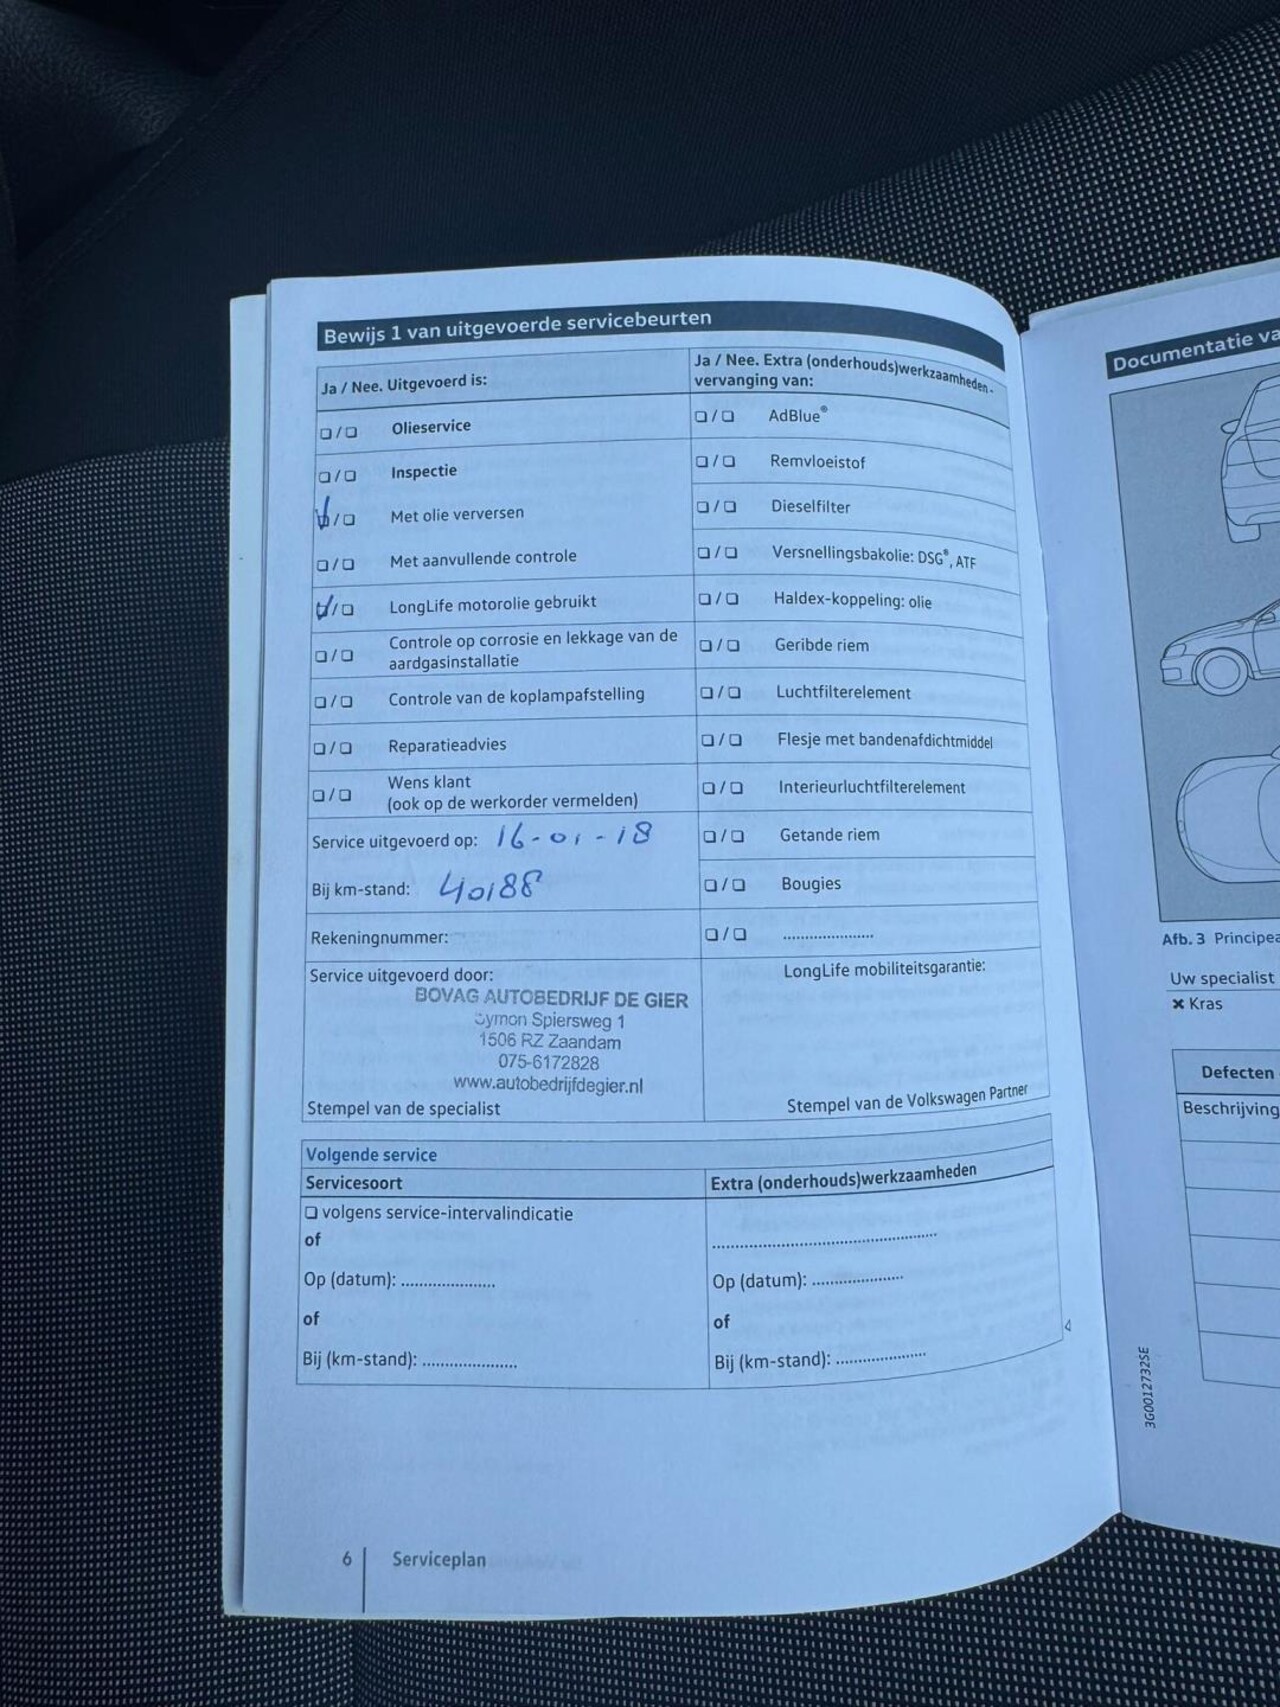 Bewijs 1 van uitgevoerde servicebeurten
Ja / Nee. Uitgevoerd is:
❏ / ❏ Olieservice
❏ / ❏ Inspectie
❏ / ❏ Met olie verversen
❏ / ❏ Met aanvullende controle
❏ / ❏ LongLife motorolie gebruikt
❏ / ❏ Controle op corrosie en lekkage van de
aardgasinstallatie
❏ / ❏ Controle van de koplampafstelling
❏ / ❏ Reparatieadvies
❏ / ❏ Wens klant
(ook op de werkorder vermelden)
Service uitgevoerd op: 16-01-18
Bij km-stand: 40188
Rekeningnummer:
Service uitgevoerd door:
BOVAG AUTOBEDRIJF DE GIER
Symon Spiersweg 1
1506 RZ Zaandam
075-6172828
www.autobedrijfdegier.nl
Stempel van de specialist
Ja / Nee. Extra (onderhouds)werkzaamheden -
vervanging van:
❏ / ❏ AdBlue®
❏ / ❏ Remvloeistof
❏ / ❏ Dieselfilter
❏ / ❏ Versnellingsbakolie: DSG®, ATF
❏ / ❏ Haldex-koppeling: olie
❏ / ❏ Geribde riem
❏ / ❏ Luchtfilterelement
❏ / ❏ Flesje met bandenafdichtmiddel
❏ / ❏ Interieurluchtfilterelement
❏ / ❏ Getande riem
❏ / ❏ Bougies
❏ / ❏ .....................
LongLife mobiliteitsgarantie:
Stempel van de Volkswagen Partner
Volgende service
Servicesoort
❏ volgens service-intervalindicatie
of
Op (datum): .....................
of
Bij (km-stand): .....................
Extra (onderhouds)werkzaamheden
..................................................
Op (datum): .....................
of
Bij (km-stand): .....................
6 Serviceplan
Documentatie va
Afb. 3 Principea
Uw specialist
✖ Kras
Defecten
Beschrijving
3G0012732SE